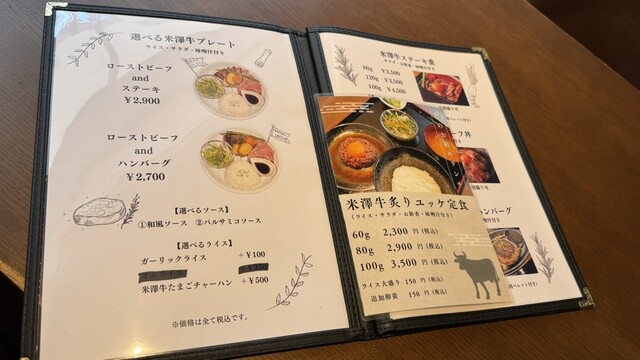 選べる米澤牛プレート
ライス・サラダ・味噌汁付き
ローストビーフ
and
ステーキ
¥2,900
ローストビーフ
and
ハンバーグ
¥2,700
【選べるソース】
①和風ソース ②バルサミコソース
【選べるライス】
ガーリックライス +¥100
米澤牛たまごチャーハン +¥500
※価格は全て税込です。
米澤牛ステーキ重
サラダ・お新香・味噌汁付き
80g ¥2,500
120g ¥3,500
100g ¥4,500
ーフ丼
ハンバーグ
米澤牛炙りユッケ定食
(ライス・サラダ・お新香・味噌汁付き)
60g 2,300円(税込)
80g 2,900円(税込)
100g 3,500円(税込)
ライス大盛り 150円(税込)
追加卵黄 150円(税込)